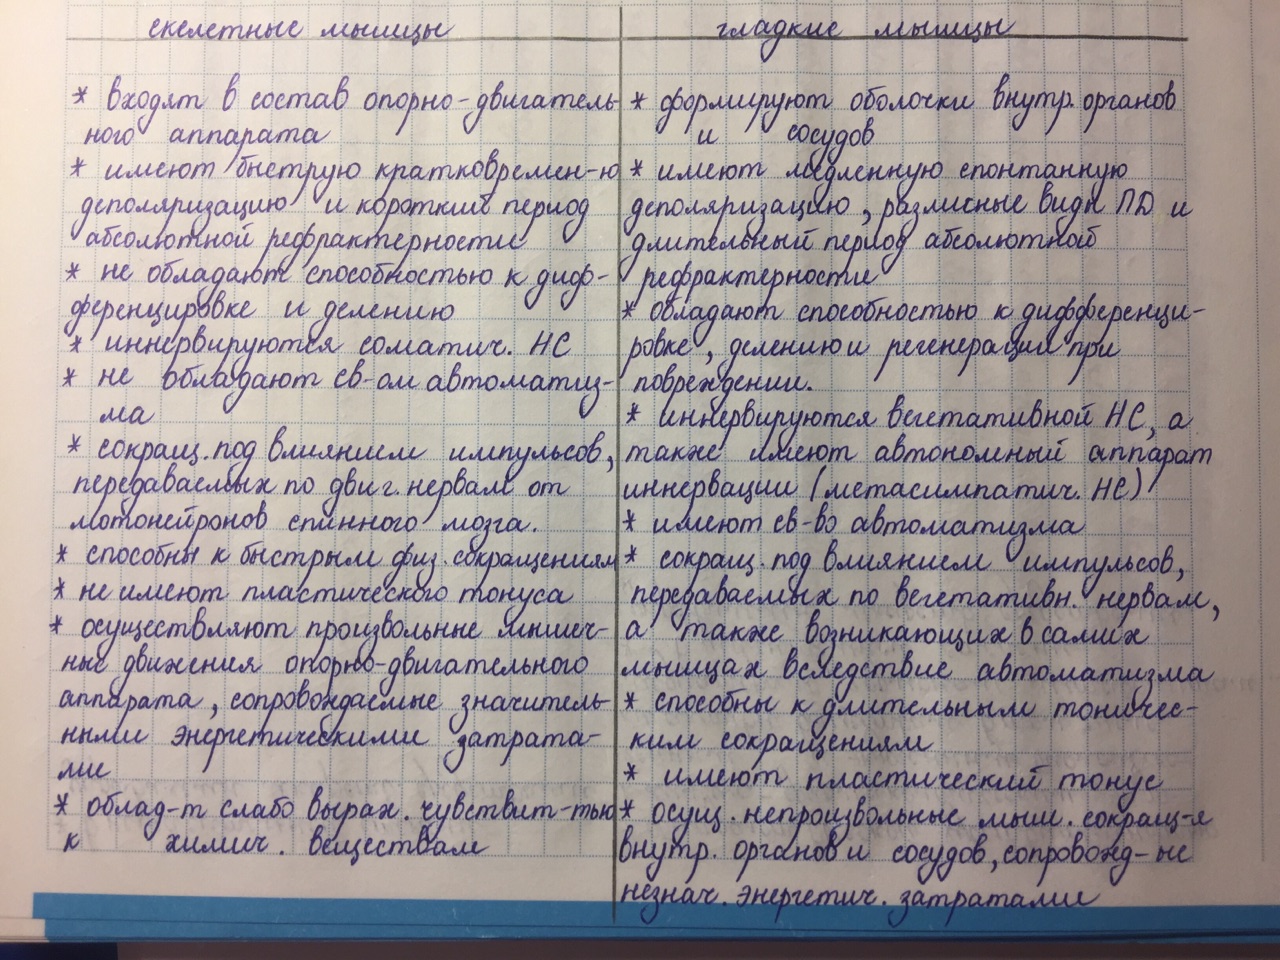 скелетные мышцы
* входят в состав опорно-двигатель-
ного аппарата
* имеют быструю кратковремен-ю
деполяризацию и короткий период
абсолютной рефрактерности
* не обладают способностью к диф-
ференцировке и делению
* иннервируются соматич. НС
* не обладают св-ом автоматиз-
ма
* сокращ. под влиянием импульсов,
передаваемых по двиг. нервам от
мотонейронов спинного мозга.
* способны к быстрым физ. сокращениям
* не имеют пластического тонуса
* осуществляют произвольные мышеч-
ные движения опорно-двигательного
аппарата, сопровождаемые значитель-
ными энергетическими затрата-
ми
* облад-т слабо выраж. чувствит-тью
к химич. веществам
гладкие мышцы
* формируют оболочки внутр. органов
и сосудов
* имеют медленную спонтанную
деполяризацию, различные виды ПД и
длительный период абсолютной
рефрактерности
* обладают способностью к дифференци-
ровке, делению и регенерации при
повреждении.
* иннервируются вегетативной НС, а
также имеют автономный аппарат
иннервации (метасимпатич. НС)
* имеют св-во автоматизма
* сокращ. под влиянием импульсов,
передаваемых по вегетативн. нервам,
а также возникающих в самих
мышцах вследствие автоматизма
* способны к длительным тоничес-
ким сокращениям
* имеют пластический тонус
* осущ. непроизвольные мыш. сокращ-я
внутр. органов и сосудов, сопровожд-ые
незнач. энергетич. затратами